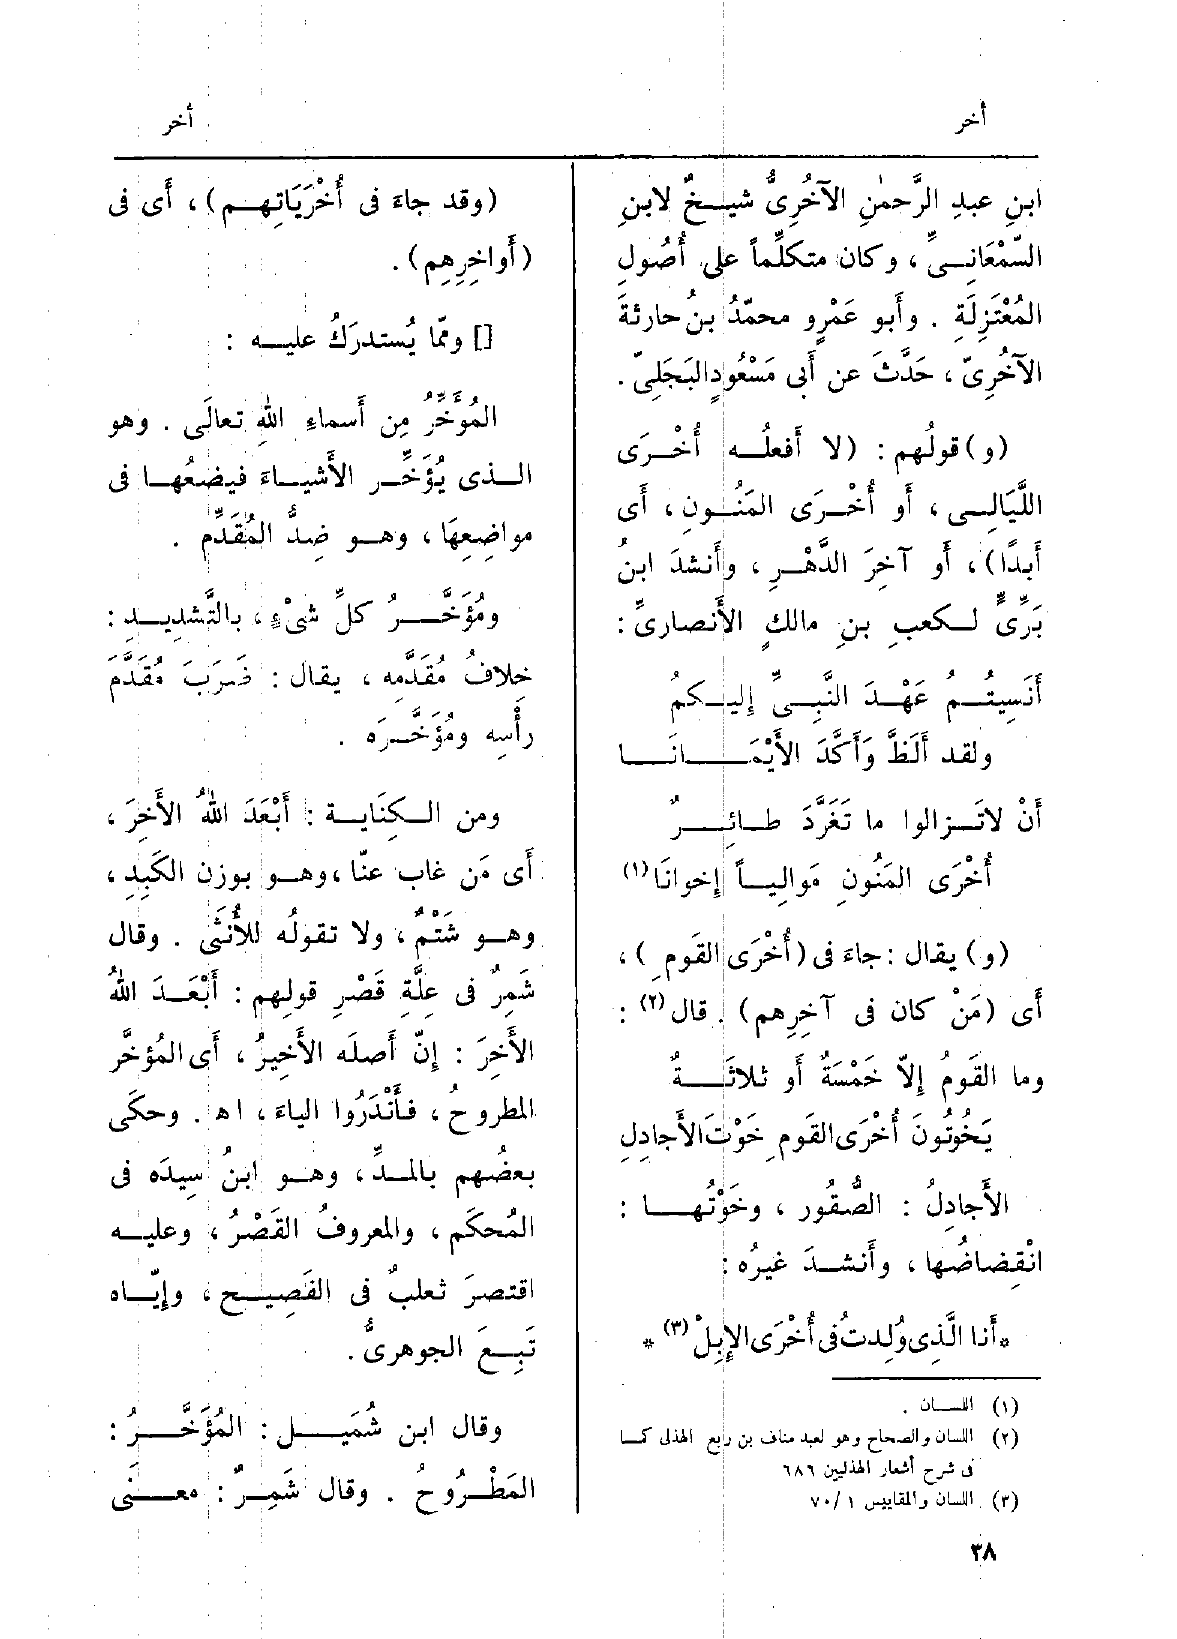 أخر
أخر
ابنِ عبدِ الرَّحمٰنِ الآخُرِىُّ شيخٌ لابنِ
السَّمْعَانِىِّ ، وكان متكلِّماً على أُصُولِ
المُعْتَزِلَةِ . وأبو عَمْرٍو محمّدُ بنُ حارثةَ
الآخُرِىّ ، حَدَّثَ عن أبى مَسْعُودٍ البَجَلِىّ .
(و) قولُهم : (لا أَفعلُه أُخْرَى
اللَّيَالِى ، أو أُخْرَى المَنُونِ ، أى
أَبدًا) ، أَو آخِرَ الدَّهْرِ ، وأَنشدَ ابنُ
بَرِّىٍّ لكعبِ بنِ مالكٍ الأَنصارىِّ :
أَنَسِيتُمُ عَهْدَ النَّبِىِّ إليكمُ
ولقد أَلَظَّ وَأَكَّدَ الأَيْمَانَا
أَنْ لاتَزالوا ما تَغَرَّدَ طائِرٌ
أُخْرَى المَنُونِ مَوالياً إخوانَا (١)
(و) يقال : جاءَ فى (أُخْرَى القومِ) ،
أى (مَنْ كان فى آخِرِهم) . قال (٢) :
وما القَومُ إلاّ خَمْسَةٌ أو ثلاثَةٌ
يَخُوتُونَ أُخْرَى القومِ خَوْتَ الأَجادِلِ
الأَجادِلُ : الصُّقُور ، وخَوْتُها :
انْقِضاضُها ، وأَنشدَ غيرُه :
*أَنا الَّذِى وُلِدتُ فى أُخْرَى الإِبِلْ (٣) *
(١) اللسان .
(٢) اللسان والصحاح وهو لعبد مناف بن ربع الهذلى كما
فى شرح أشعار الهذليين ٦٨٦
(٣) اللسان والمقاييس ١ /٧٠
(وقد جاءَ فى أُخْرَيَاتِهم) ، أَى فى
(أَواخِرِهم) .
[] وممّا يُستدرَكُ عليه :
المُؤَخِّرُ مِن أَسماءِ اللهِ تعالَى . وهو
الذى يُؤَخِّر الأَشياءَ فيضعُها فى
مواضِعِهَا ، وهو ضِدُّ المُقَدِّمِ .
ومُؤَخَّرُ كلِّ شىْءٍ ، بالتَّشديدِ :
خِلافُ مُقَدَّمِه ، يقال : ضَرَبَ مُقَدَّمَ
رأْسِه ومُؤَخَّرَه .
ومن الكِنَاية : أَبْعَدَ اللهُ الأَخِرَ ،
أَى مَن غاب عنّا ، وهو بوزن الكَبِدِ ،
وهو شَتْمٌ ، ولا تقولُه للأُنثَى . وقال
شَمِرٌ فى عِلَّةِ قَصْرِ قولِهم : أَبْعَدَ اللهُ
الأَخِرَ : إنّ أَصلَه الأَخِيرُ ، أَى المُؤخَّر
المطروحُ ، فأَنْدَرُوا الياءَ ، اه . وحكَى
بعضُهم بالمدِّ ، وهو ابنُ سِيدَه فى
المُحكَم ، والمعروفُ القَصْرُ ، وعليه
اقتصرَ ثعلبٌ فى الفَصِيح ، وإيّاه
تَبِعَ الجوهرىُّ .
وقال ابن شُمَيل : المُؤَخَّرُ :
المَطْرُوحُ . وقال شَمِرٌ : معنَى
٣٨